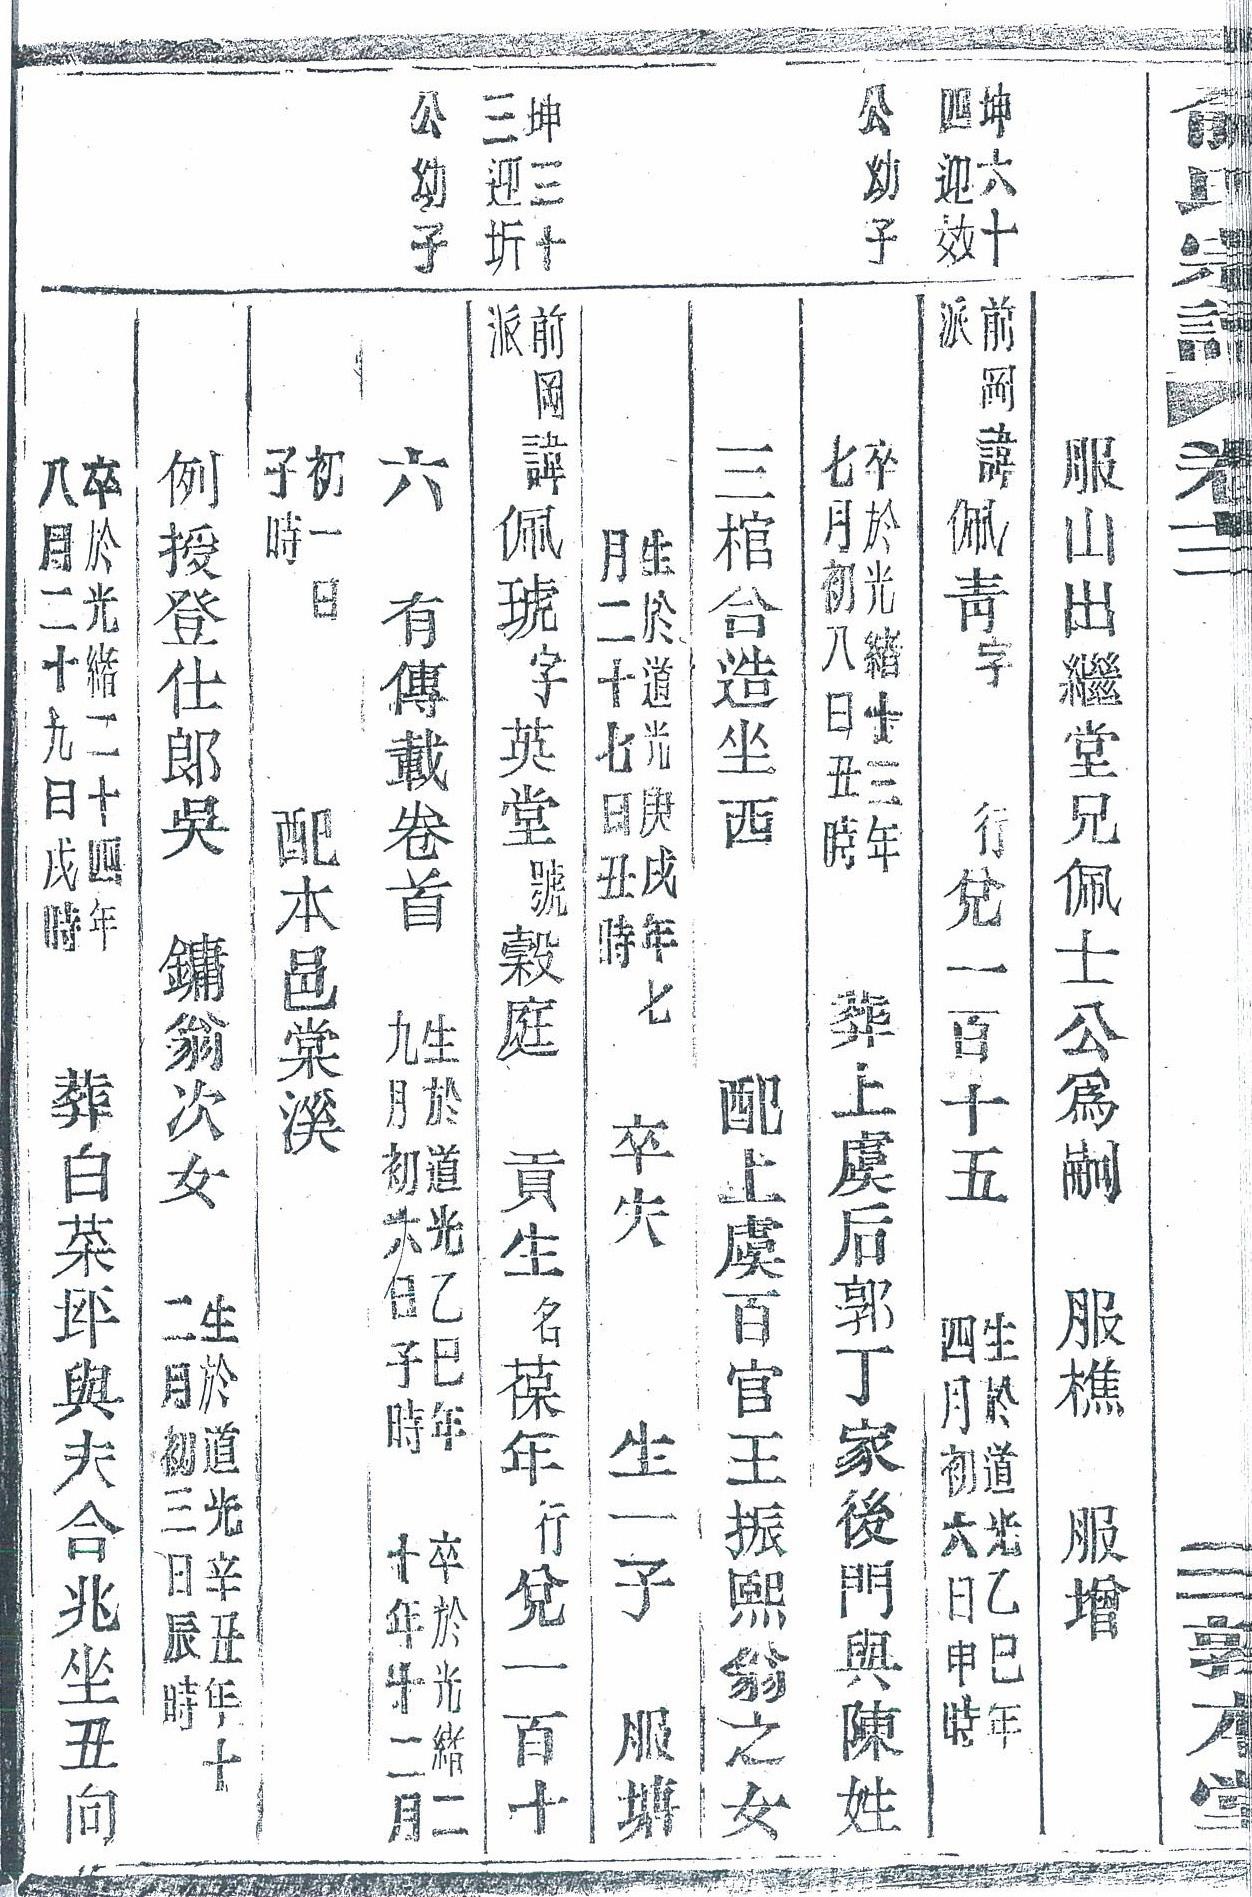 俞氏宗譜 卷二 三 敦本堂
服山出繼堂兄佩士公為嗣 服樵 服增
坤六十
四迎效
公幼子
前岡
派
諱佩青字 行兌一百十五 生於道光乙巳年
四月初六日申時
卒於光緒十三年
七月初八日丑時
葬上虞后郭丁家後門與陳姓
三棺合造坐西 配上虞百官王振熙翁之女
生於道光庚戌年七
月二十七日丑時
卒失 生一子 服塘
坤三十
三迎圻
公幼子
前岡
派
諱佩琥字英堂號榖庭 貢生名葆年行兌一百十
六 有傳載卷首 生於道光乙巳年
九月初六日子時
卒於光緒二
十年十二月
初一日
子時
配本邑棠溪
例授登仕郎吳 鏞翁次女 生於道光辛丑年十
二月初三日辰時
卒於光緒二十四年
八月二十九日戌時
葬白菜坪與夫合兆坐丑向